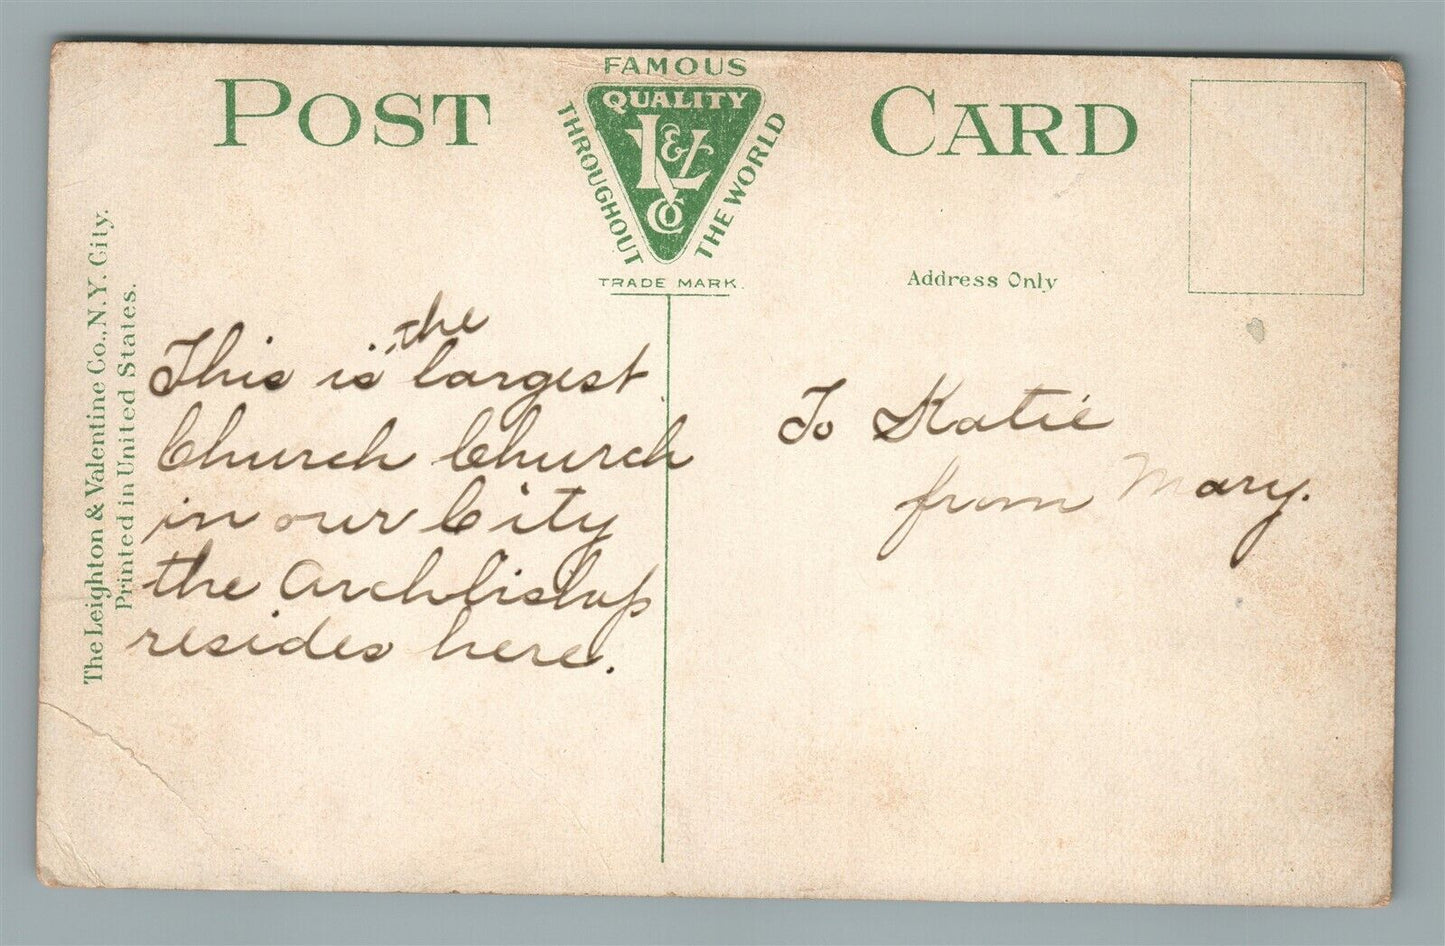 POST CARD
FAMOUS
QUALITY
THROUGHOUT
THE WORLD
L & V
CO
TRADE MARK.
Address Only
The Leighton & Valentine Co., N.Y. City.
Printed in United States.
the
This is largest
Church Church
in our City
the Archbishop
resides here.
To Katie
from Mary.